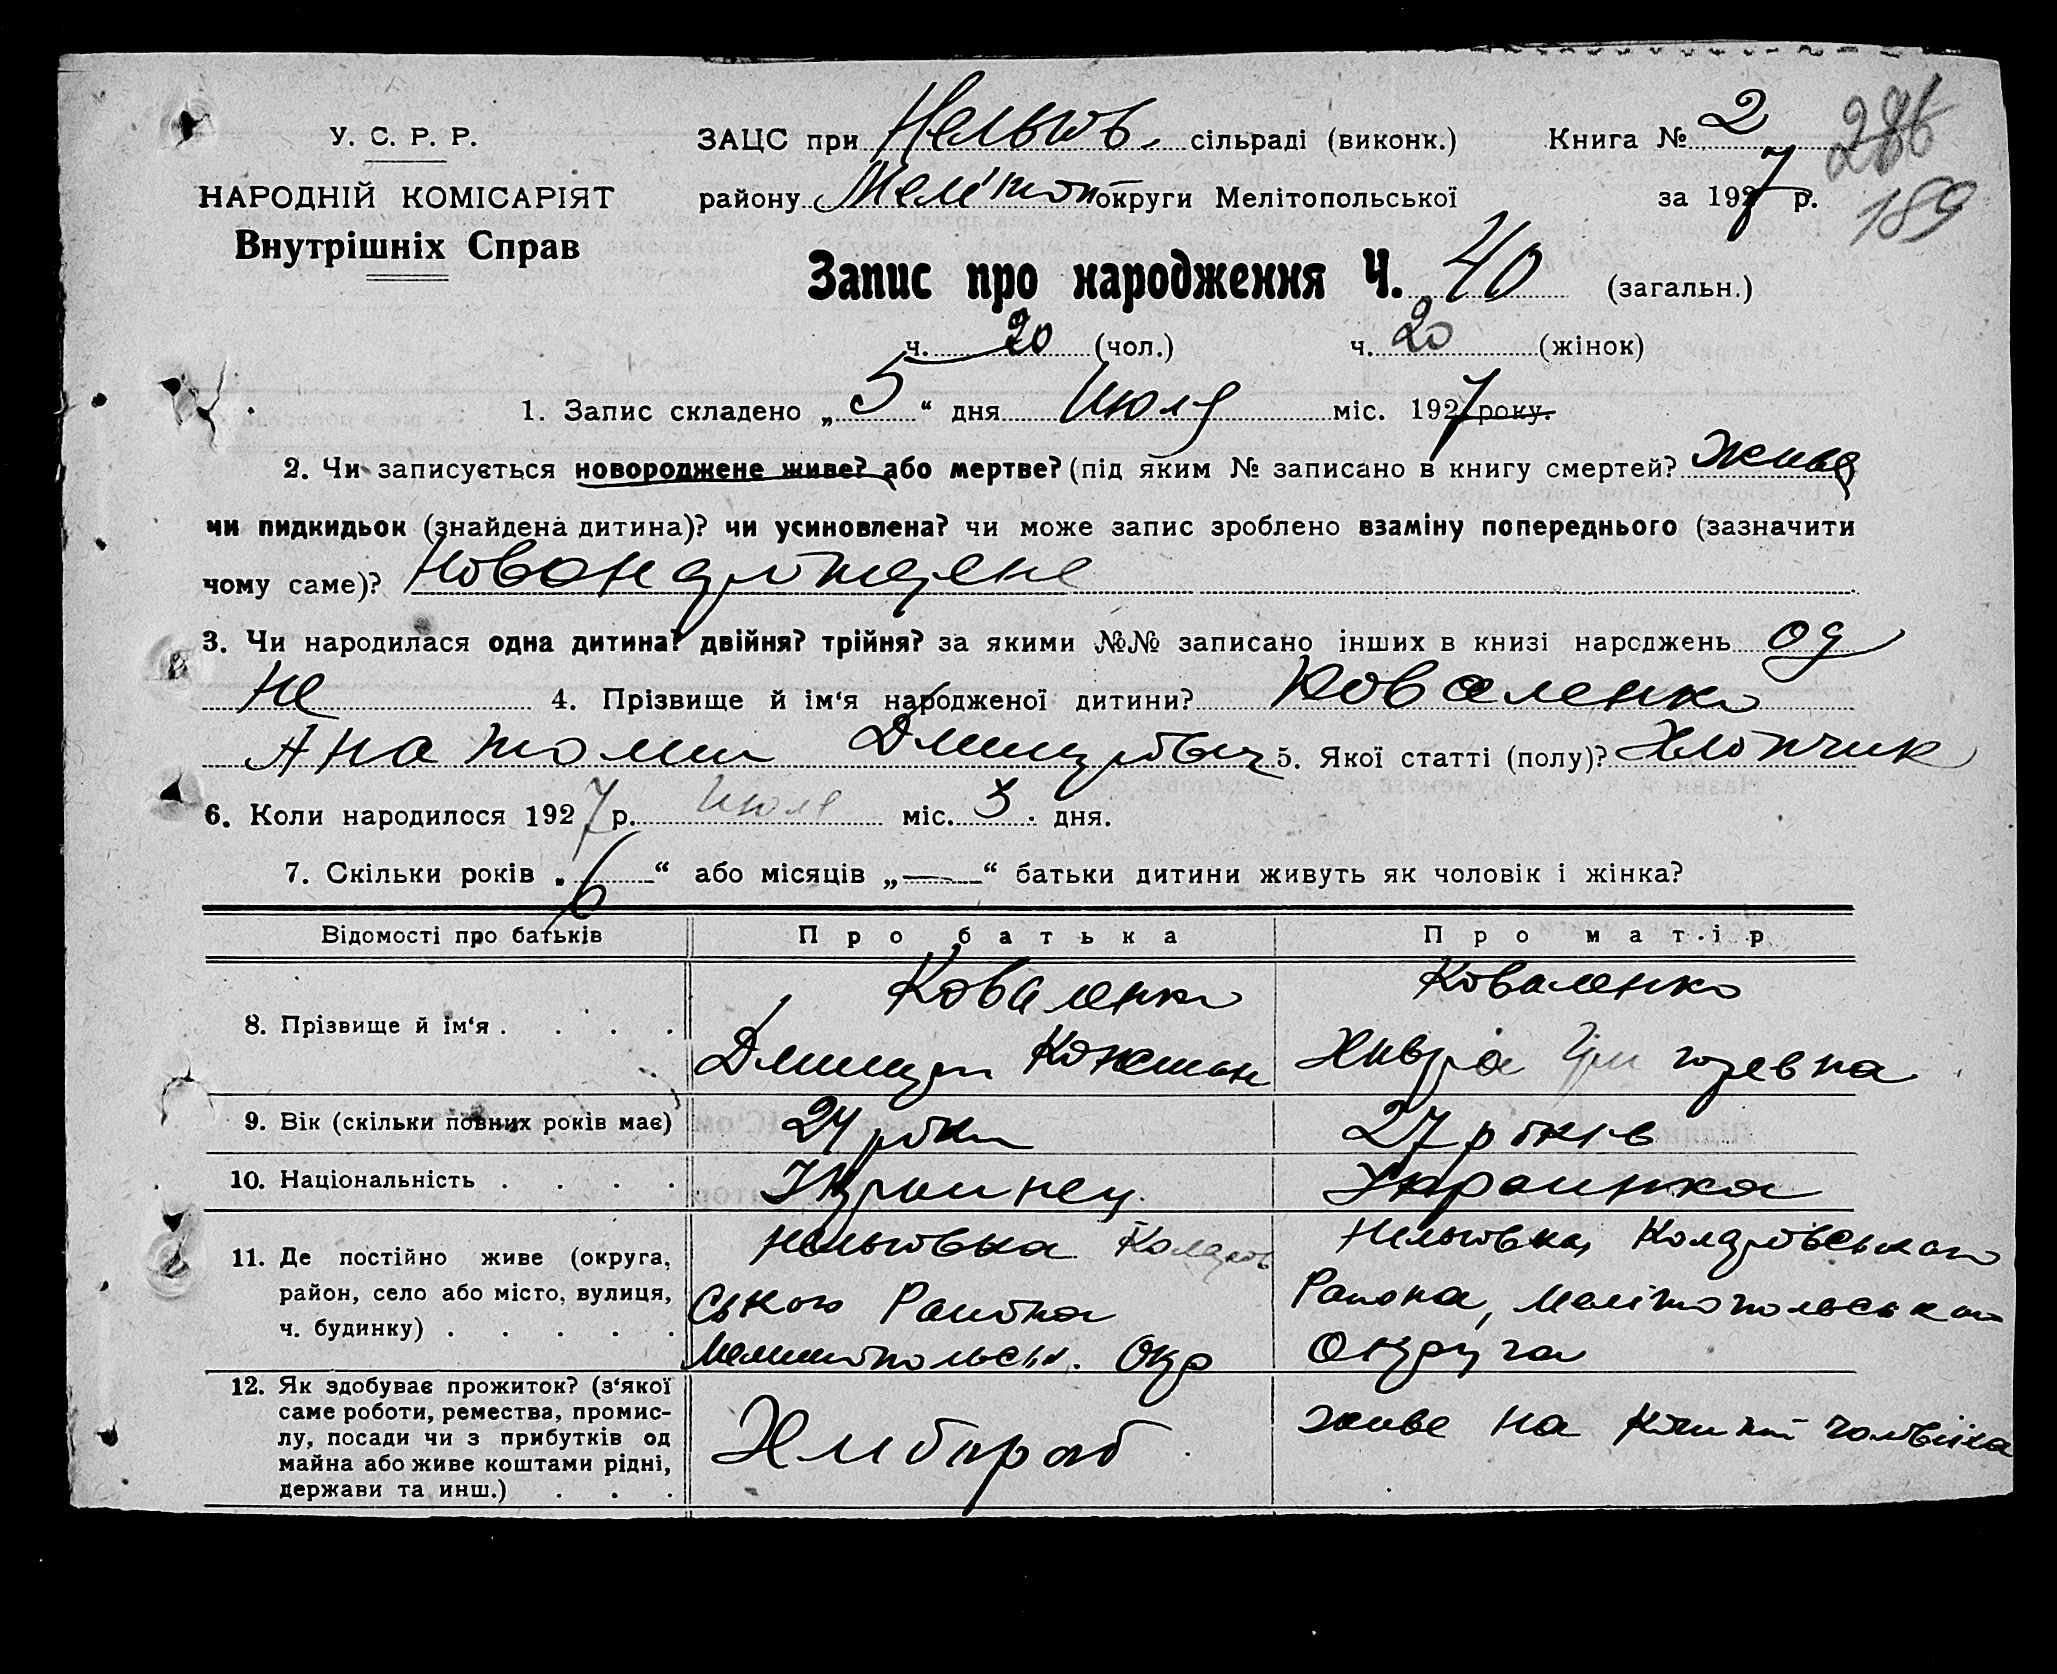 У. С. Р. Р.
НАРОДНІЙ КОМІСАРІЯТ
Внутрішніх Справ
ЗАЦС при Нельгов. сільраді (виконк.) Книга № 2
286
району Мелітоп округи Мелітопольської за 1927 р.
189
Запис про народження Ч. 40 (загальн.)
ч. 20 (чол.) ч. 20 (жінок)
1. Запис складено „5“ дня Июля міс. 1927 року.
2. Чи записується новороджене живе? або мертве? (під яким № записано в книгу смертей?
чи пидкидьок (знайдена дитина)? чи усиновлена? чи може запис зроблено взаміну попереднього (зазначити
чому саме)?
3. Чи народилася одна дитина? двійня? трійня? за якими №№ записано інших в книзі народжень од
не 4. Прізвище й ім‘я народженої дитини? Коваленко
Анатоли Дмитрович 5. Якої статті (полу)? Хлопчик
6. Коли народилося 1927 р. Июля міс. 3 дня.
7. Скільки років „6“ або місяців „—“ батьки дитини живуть як чоловік і жінка?
Відомості про батьків Про батька Про матір
8. Прізвище й ім‘я
Коваленко
Дмитро
Коваленко
Хивря
9. Вік (скільки повних років має) 24 роки 27 років
10. Національність Украинец. Украинка
11. Де постійно живе (округа,
район, село або місто, вулиця,
ч. будинку)
Нельговка Коларов
ського Района
Мелитопольськ. Окр
Нельговка, Коларовського
Района, Мелітопольськои
Округа
12. Як здобуває прожиток? (з‘якої
саме роботи, ремества, промис-
лу, посади чи з прибутків од
майна або живе коштами рідні,
держави та инш.)
Хлибороб
живе на кошти чоловіка